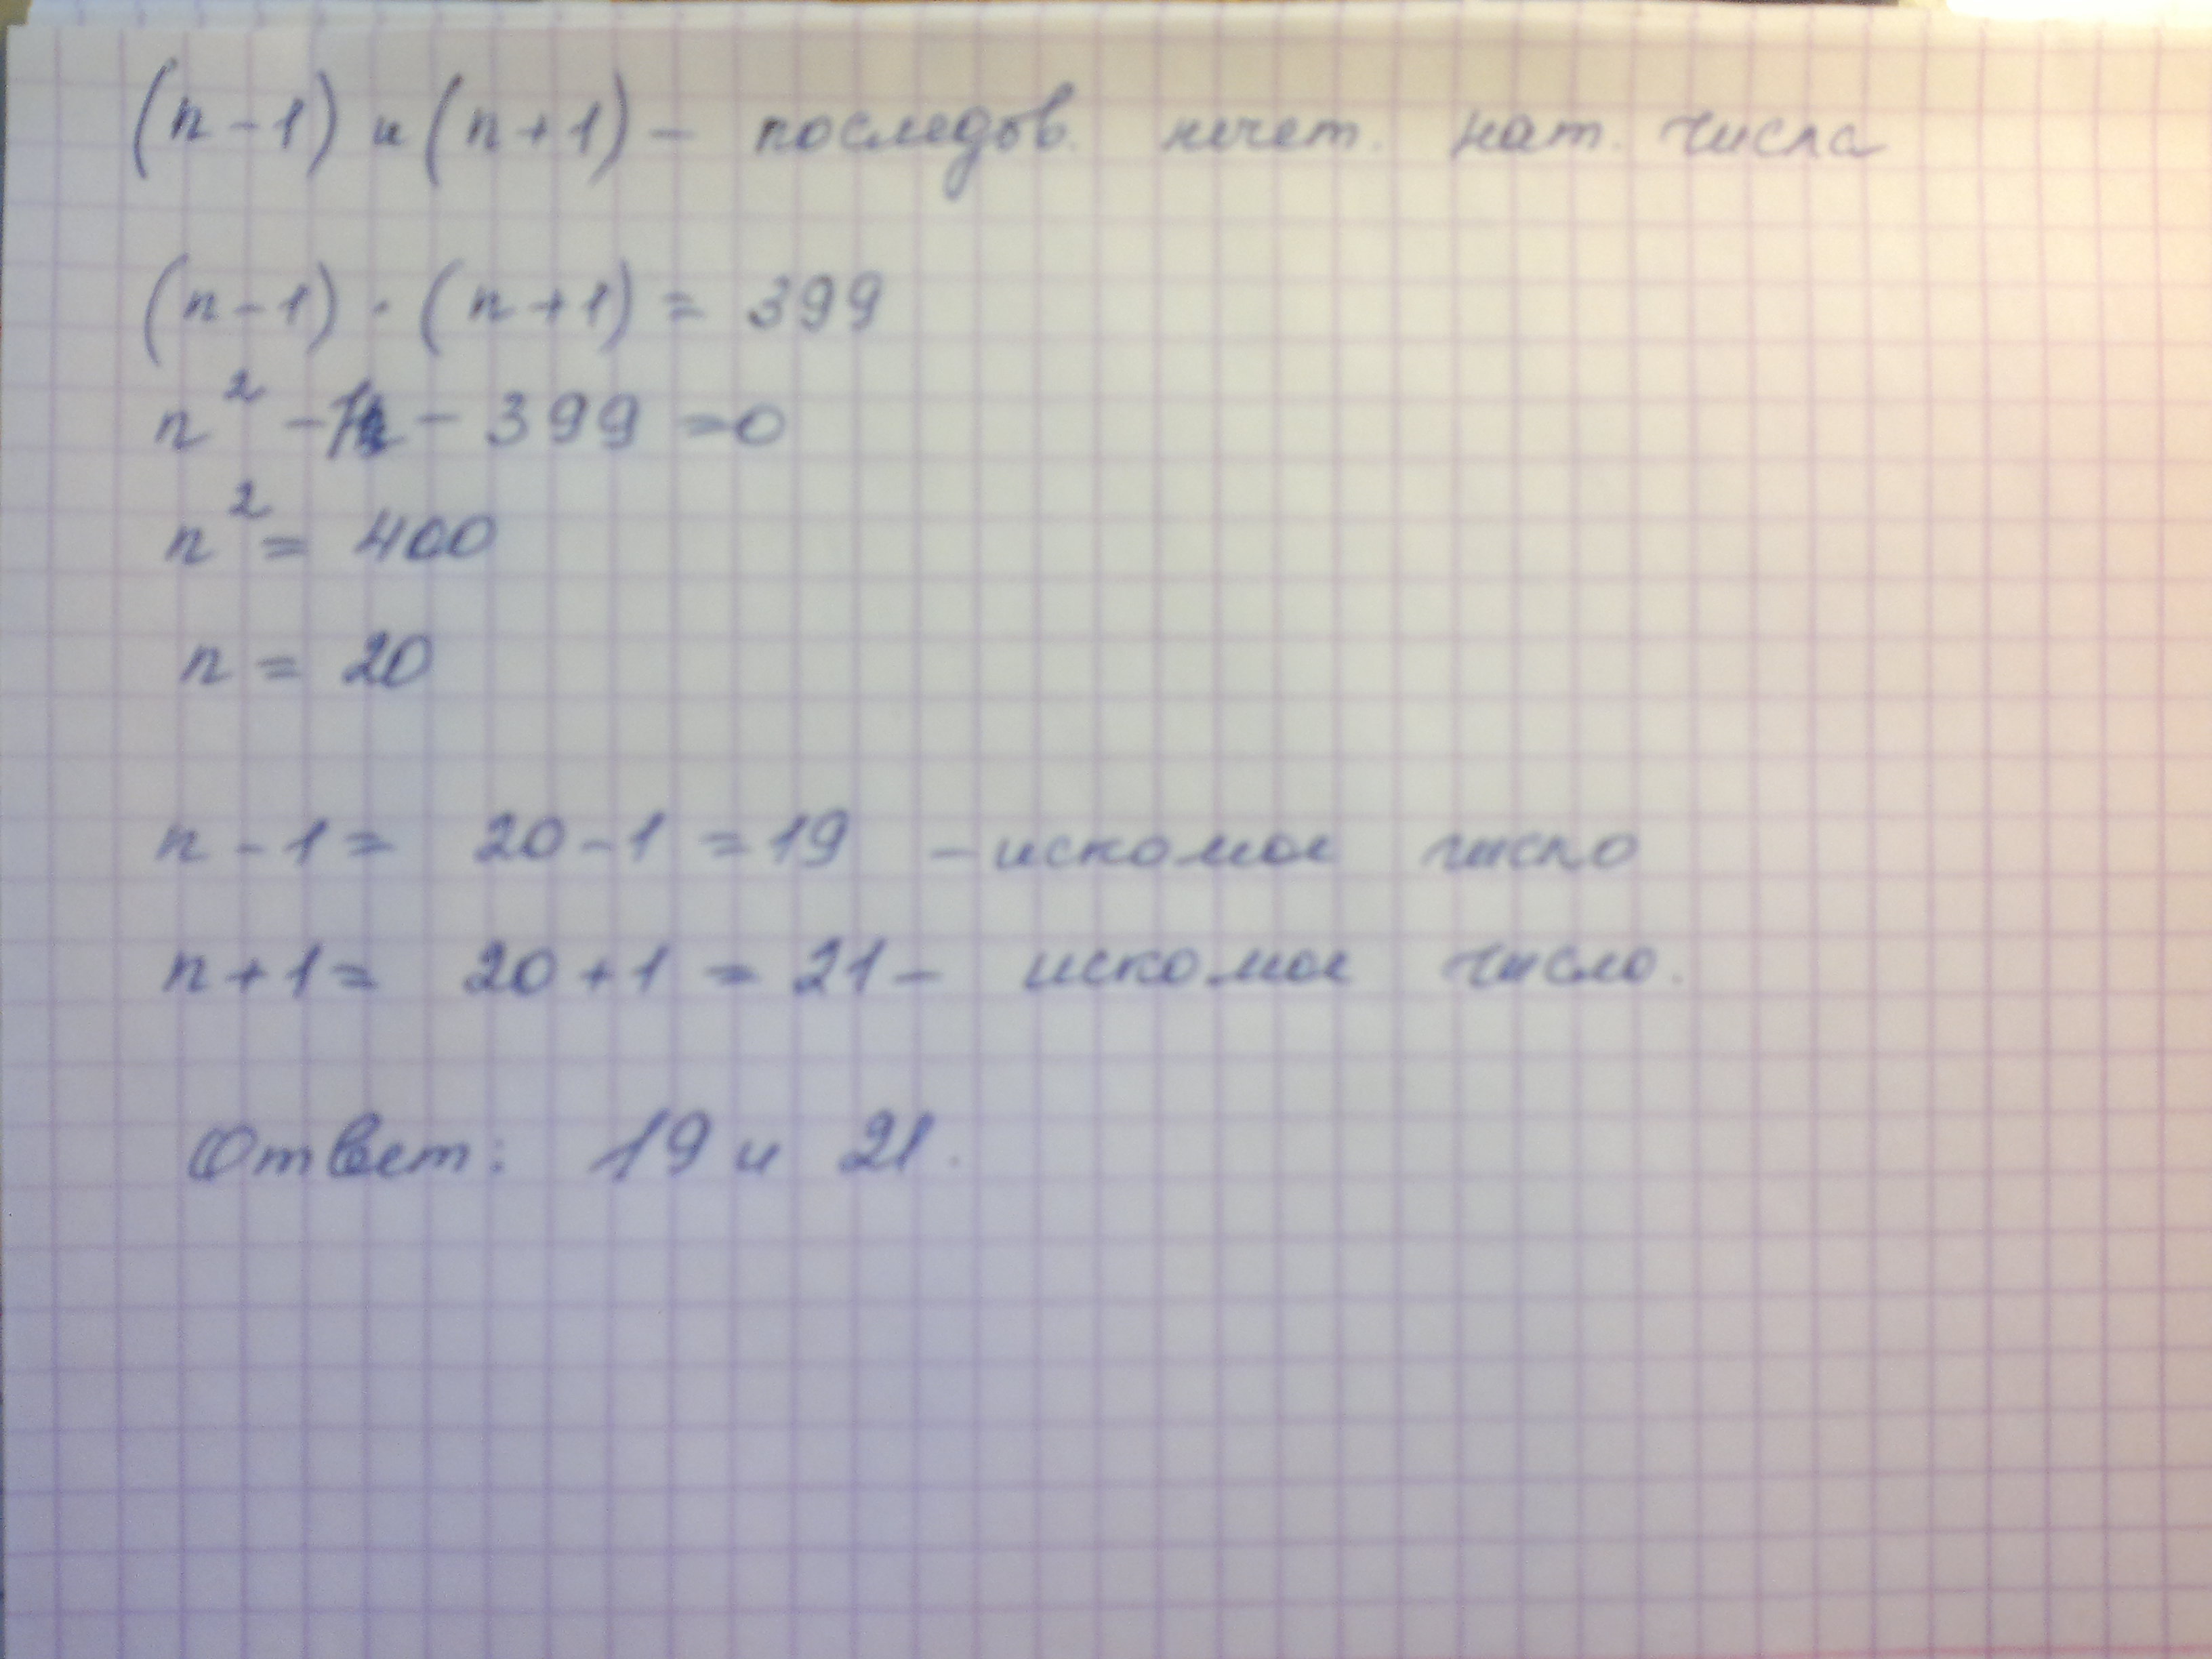 (n-1) и (n+1) - последов. нечет. нат. числа
(n-1) · (n+1) = 399
n² - 1 - 399 = 0
n² = 400
n = 20
n - 1 = 20 - 1 = 19 - искомое число
n + 1 = 20 + 1 = 21 - искомое число.
Ответ: 19 и 21.